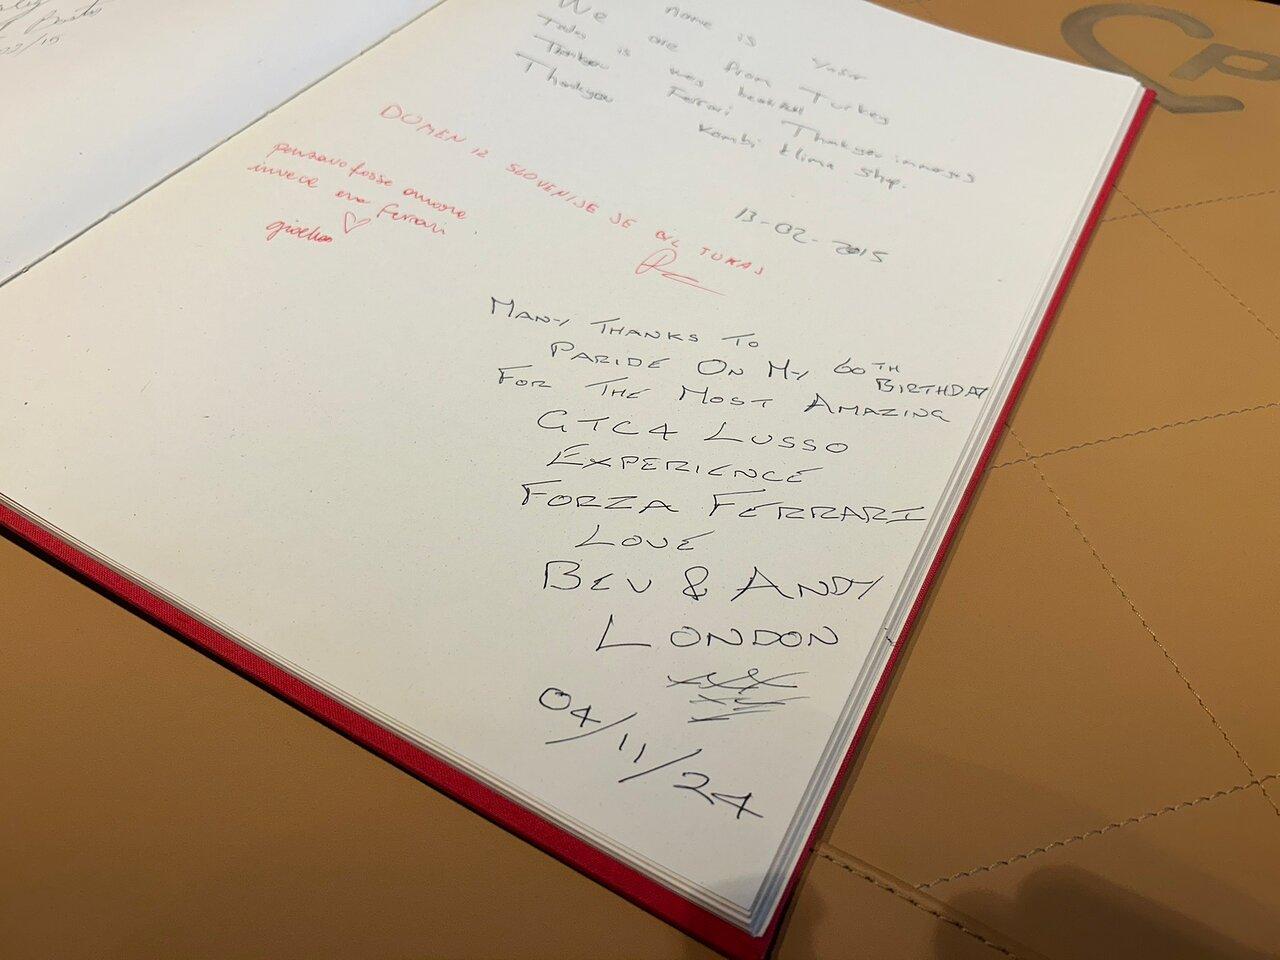 We name is
We are from Turkey
Today is very beautiful Thankyou
Ferrari
Thankyou Kombi klima shop.
13-02-2015
DOMEN IZ SLOVENIJE JE BIL TUKAJ
pensavo fosse amore
invece era Ferrari
MANY THANKS TO
PARIDE ON MY 60TH
BIRTHDAY
FOR THE MOST AMAZING
GTC4 LUSSO
EXPERIENCE
FORZA FERRARI
LOVE
BEV & ANDY
LONDON
04/11/24
CP